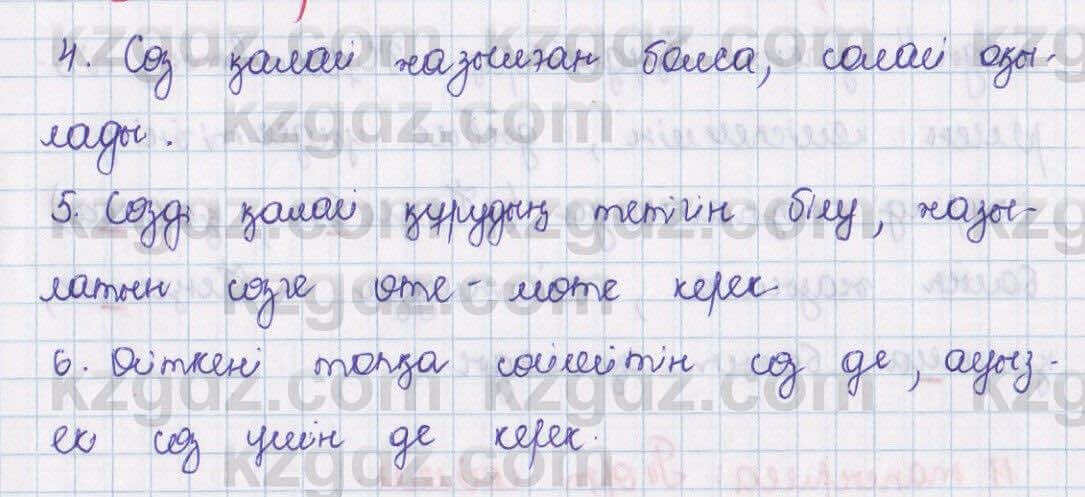 4. Сөз қалай жазылған болса, солай оқы-
лады.
5. Сөзді қалай құрудың тетігін білу, жазы-
латын сөзге өте-мөте керек.
6. Өйткені топқа сөйлейтін сөз де, ауыз-
екі сөз үшін де керек.
kzgdz.com